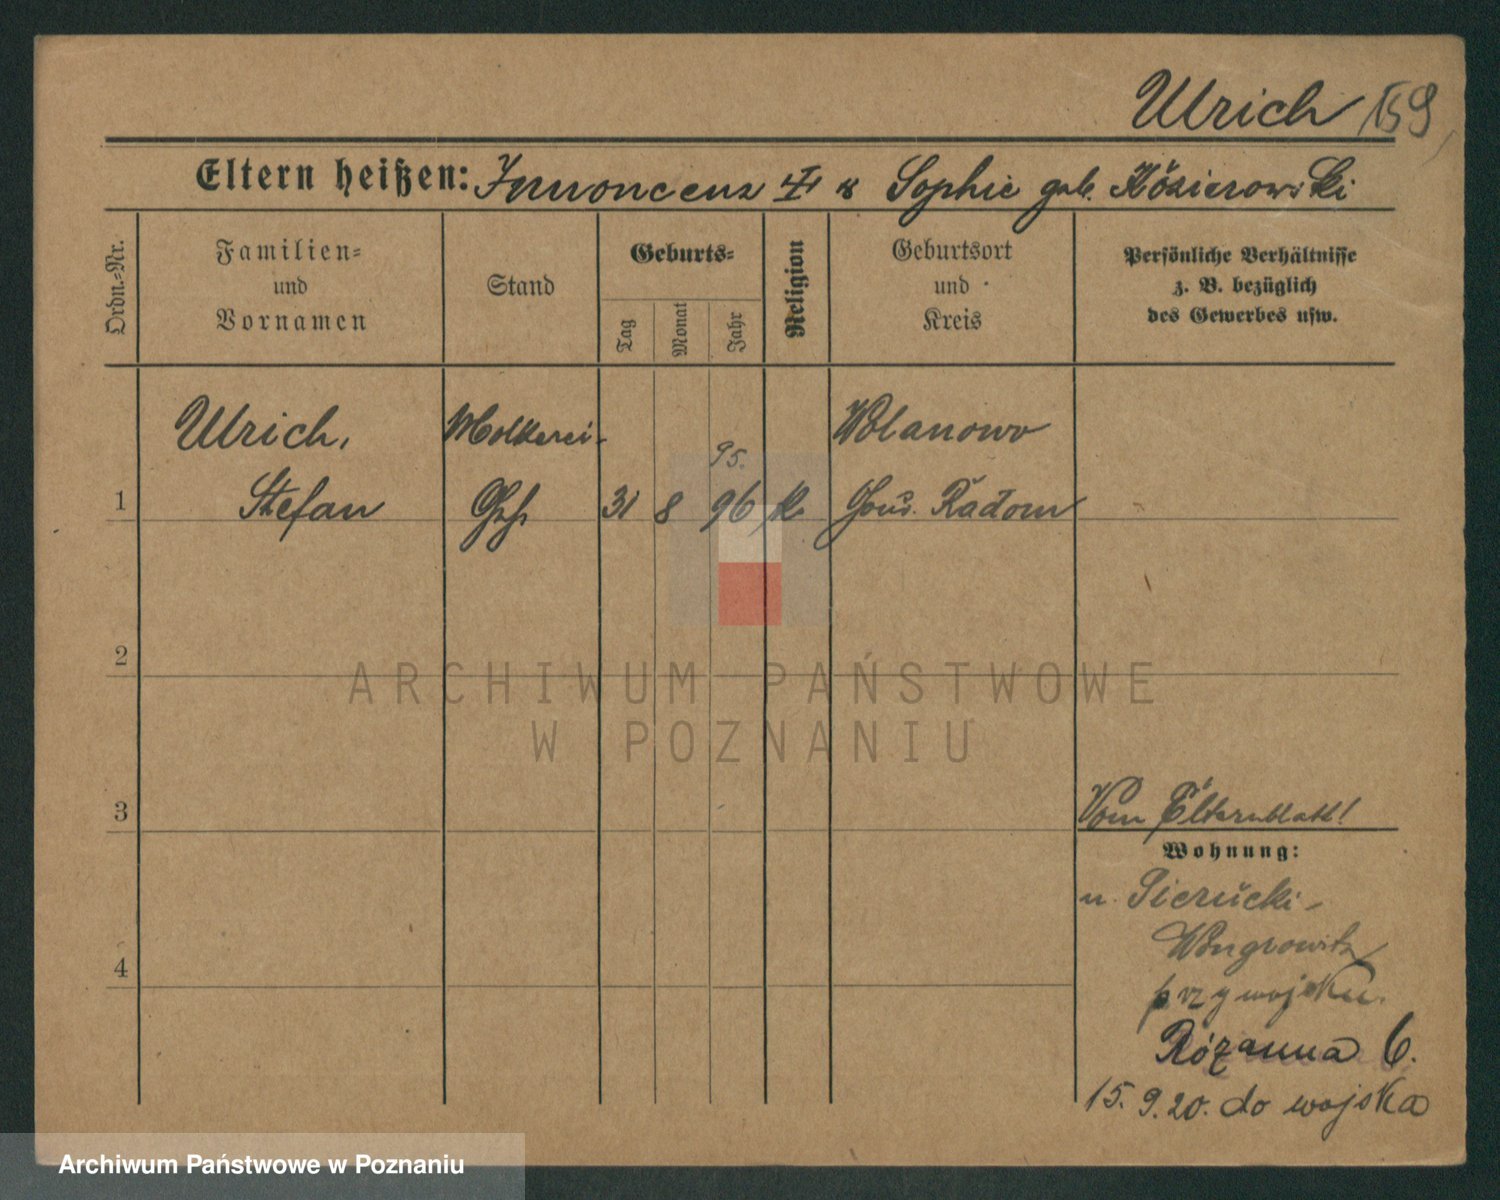 Ulrich 159
Eltern heißen: Innoncenz & Sophie geb. Kósierowski
Ordn.-Nr.
Familien-
und
Vornamen
Stand
Geburts-
Tag
Monat
Jahr
Religion
Geburtsort
und
Kreis
Persönliche Verhältnisse
z. B. bezüglich
des Gewerbes usw.
Ulrich, Molkerei- 95. Wolanowo
1 Stefan Ghf 31 8 96 k. Gouv. Radom
2
ARCHIWUM PAŃSTWOWE
W POZNANIU
3
Vom Elternblatt!
Wohnung:
n. Sierucki-
4
Wongrowitz
przy wojsku.
Rózanna 6.
15. 9. 20. do wojska
Archiwum Państwowe w Poznaniu